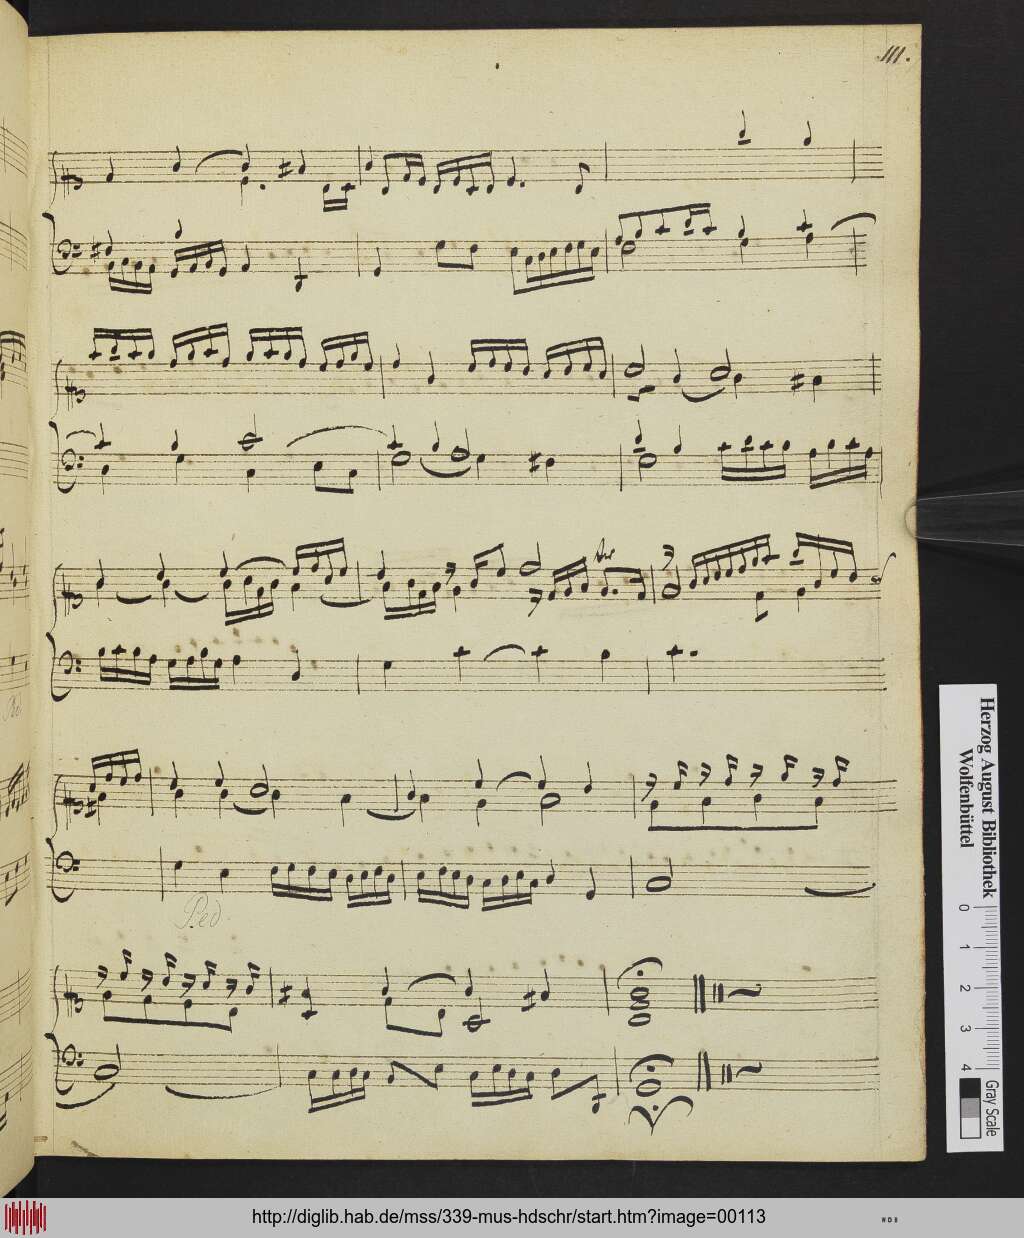 111.
Ped.
Herzog August Bibliothek
Wolfenbüttel
0 1 2 3 4
Gray Scale
http://diglib.hab.de/mss/339-mus-hdschr/start.htm?image=00113